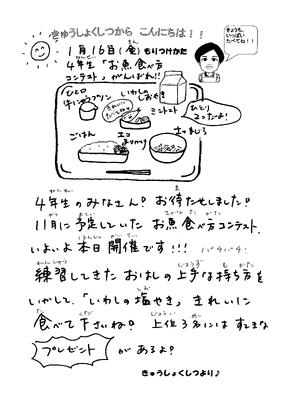 きゅうしょくしつから こんにちは!!
きょうも、
いっぱい
たべてね!!
1月16日(金)もりつけかた
4年生「お魚食べ方
コンテスト」がんばれ!!
ひとり
いわしの
しおやき
きれいに
たべてね
ひとり
1こ
ごはん
4年生のみなさん? お待たせしました?
11月に予定していた お魚食べ方コンテスト、
いよいよ本日開催です!!! パチパチ!
練習してきた おはしの上手な持ち方を
いかして、「いわしの塩やき」 きれいに
食べて下さいね? 上位3名には すてきな
プレゼント があるよ?
きゅうしょくしつより♪